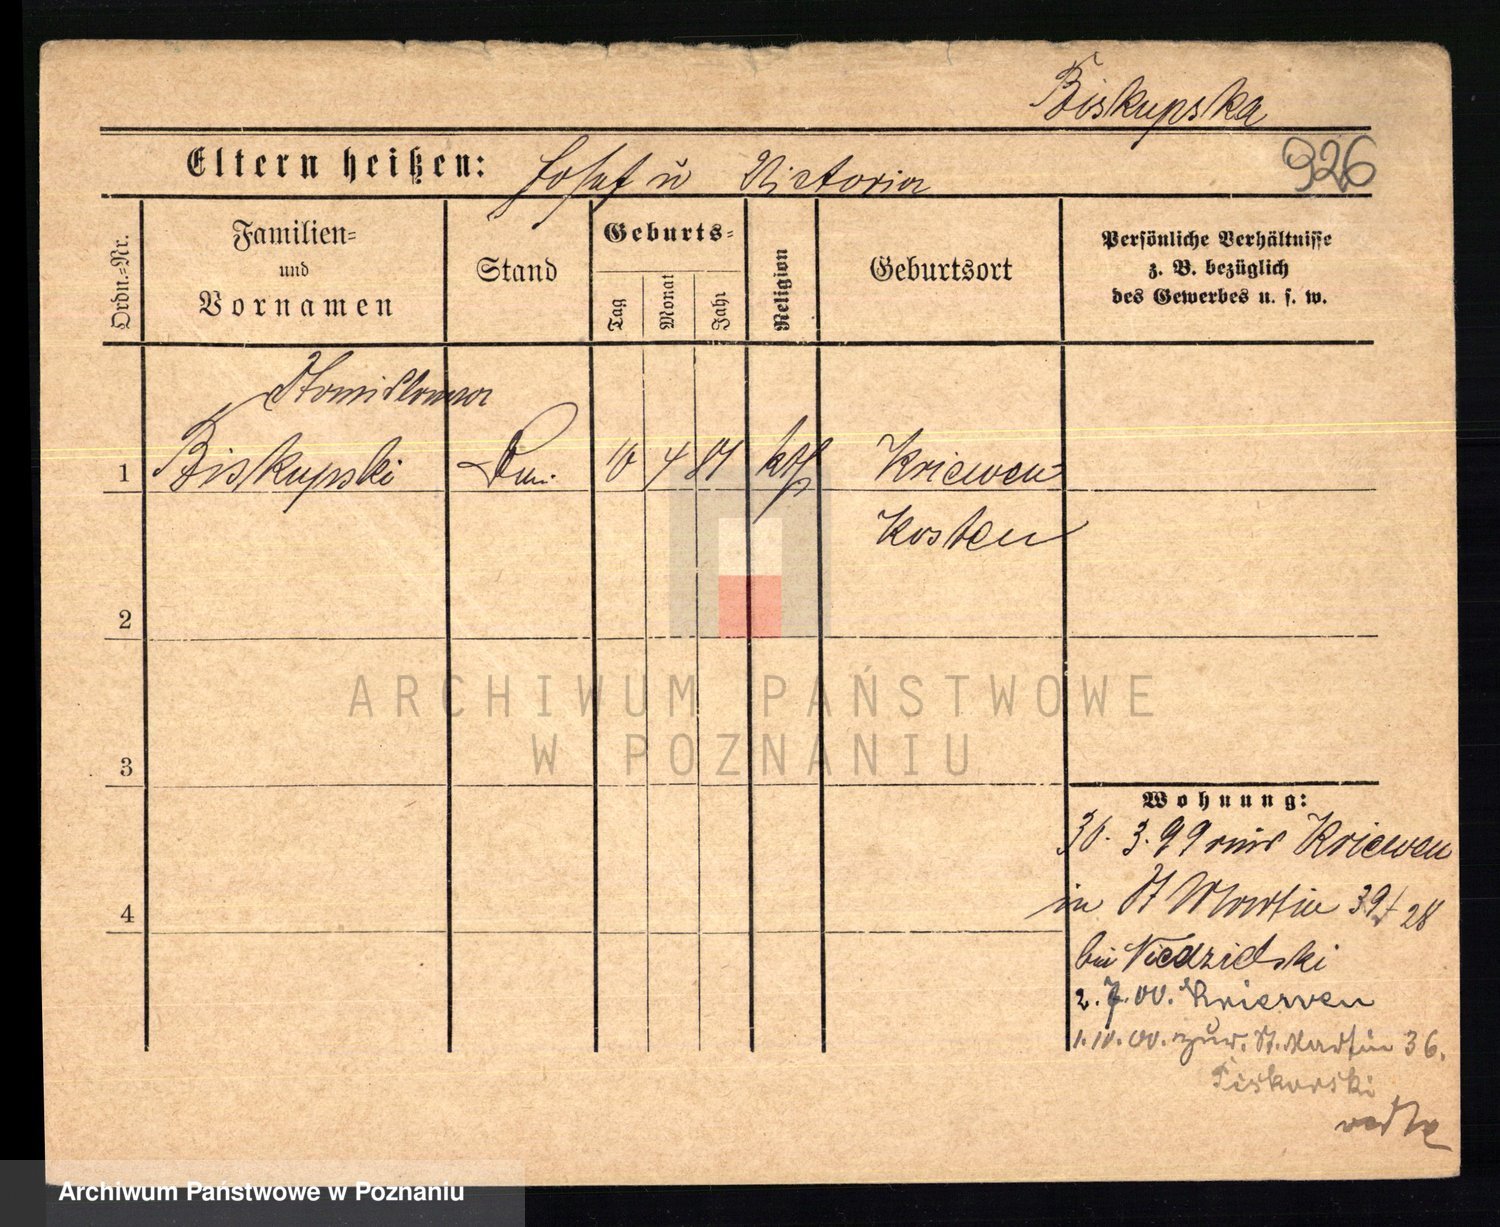 Biskupska
926
Eltern heißen: Josef u Victoria
Ordn.-Nr.
Familien-
und
Vornamen
Stand
Geburts-
Tag
Monat
Jahr
Religion
Geburtsort
Persönliche Verhältnisse
z. B. bezüglich
des Gewerbes u. s. w.
Stanislawa
1 Biskupski 10 4 81 kth Kriewen
Kosten
2
3
4
Wohnung:
30. 3. 99 aus Kriewen
in St Martin 39/28
bei Niedzielski
2. 7. 00. Kriewen
1. 10. 00. zur. St. Martin 36.
Piskorski
ARCHIWUM PAŃSTWOWE
W POZNANIU
Archiwum Państwowe w Poznaniu